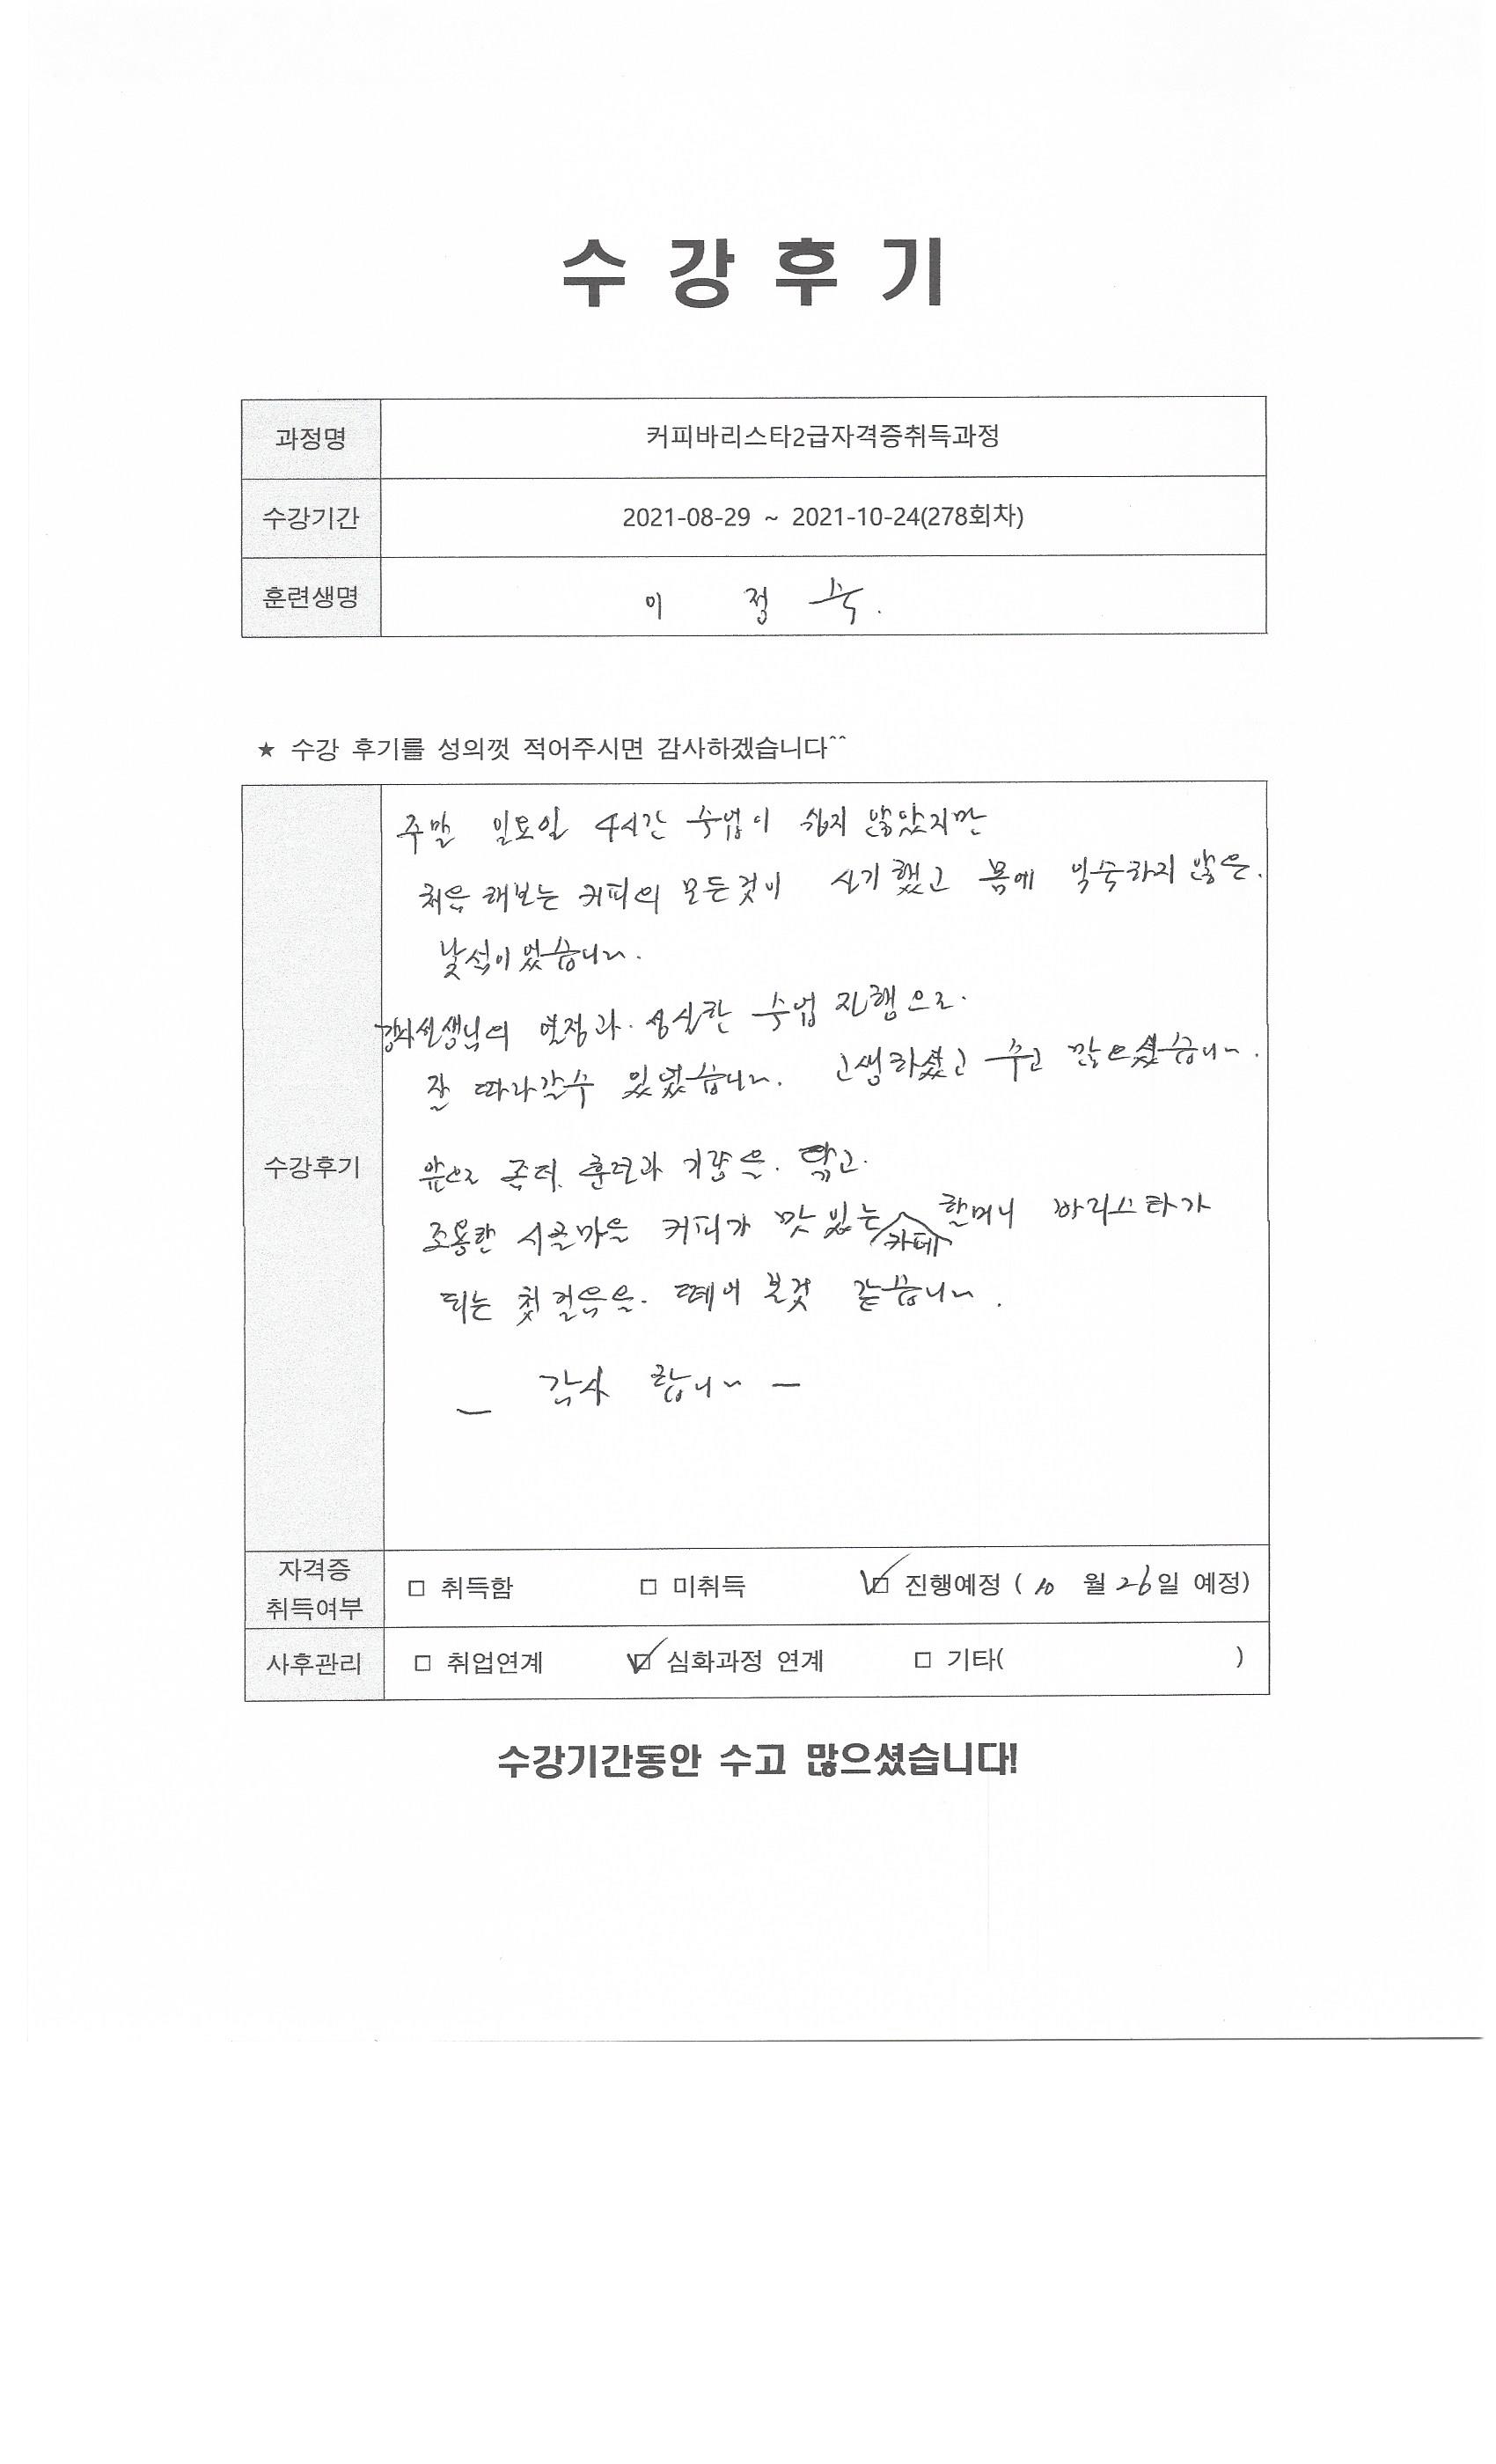 수 강 후 기
과정명 커피바리스타2급자격증취득과정
수강기간 2021-08-29 ~ 2021-10-24(278회차)
훈련생명 이 정 숙.
★ 수강 후기를 성의껏 적어주시면 감사하겠습니다^^
주말 일요일 4시간 수업이 쉽지 않았지만
처음 해보는 커피의 모든것이 신기했고 몸에 익숙하지 않은.
낯섦이었습니다.
강사선생님의 열정과. 성실한 수업 진행으로.
잘 따라갈수 있었습니다. 고생하셨고 수고 많으셨습니다.
수강후기
앞으로 훈련과 기량을. 닦고.
조용한 시골마을 커피가 맛있는 카페 할머니 바리스타가
되는 첫걸음을. 떼어 볼것 같습니다.
_ 감사 합니다 —
자격증
취득여부
□ 취득함 □ 미취득 ☑ 진행예정 ( 10 월 26일 예정)
사후관리 □ 취업연계 ☑ 심화과정 연계 □ 기타( )
수강기간동안 수고 많으셨습니다!